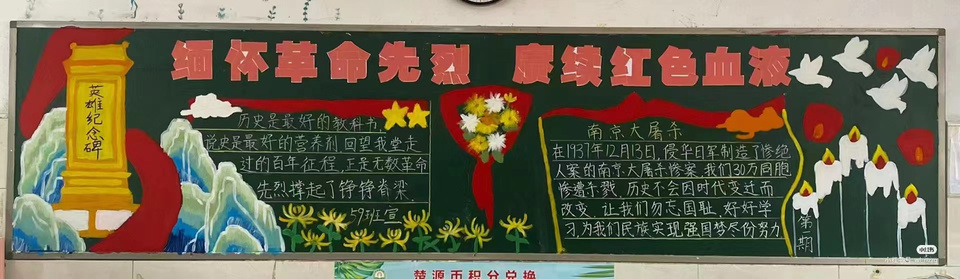 缅怀革命先烈 赓续红色血液
英雄纪念碑
历史是最好的教科书,
说史是最好的营养剂 回望我党走
过的百年征程,正是无数革命
先烈撑起了铮铮脊梁
593班宣
南京大屠杀
在1937年12月13日,侵华日军制造了惨绝
人案的南京大屠杀惨案,我们30万同胞
惨遭杀戮,历史不会因时代变迁而
改变,让我们勿忘国耻,好好学
习,为我们民族实现强国梦尽份努力
第一期
楚源币积分兑换